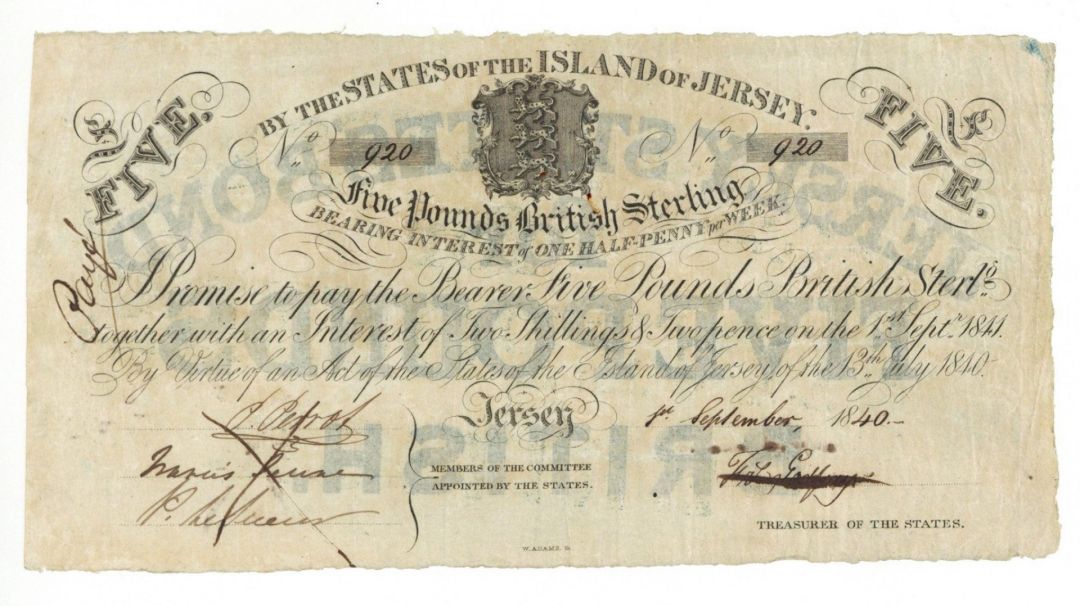 BY THE STATES OF THE ISLAND OF JERSEY.
FIVE. FIVE.
No 920 No 920
Five Pounds British Sterling
BEARING INTEREST of ONE HALF-PENNY per WEEK.
Payé
I Promise to pay the Bearer Five Pounds British Sterlg.
together with an Interest of Two Shillings & Two pence on the 1st Septr. 1841.
By Virtue of an Act of the States of the Island of Jersey, of the 13th July 1840.
Jersey 1st September, 1840.
MEMBERS OF THE COMMITTEE
APPOINTED BY THE STATES.
TREASURER OF THE STATES.
W. ADAMS. Sc